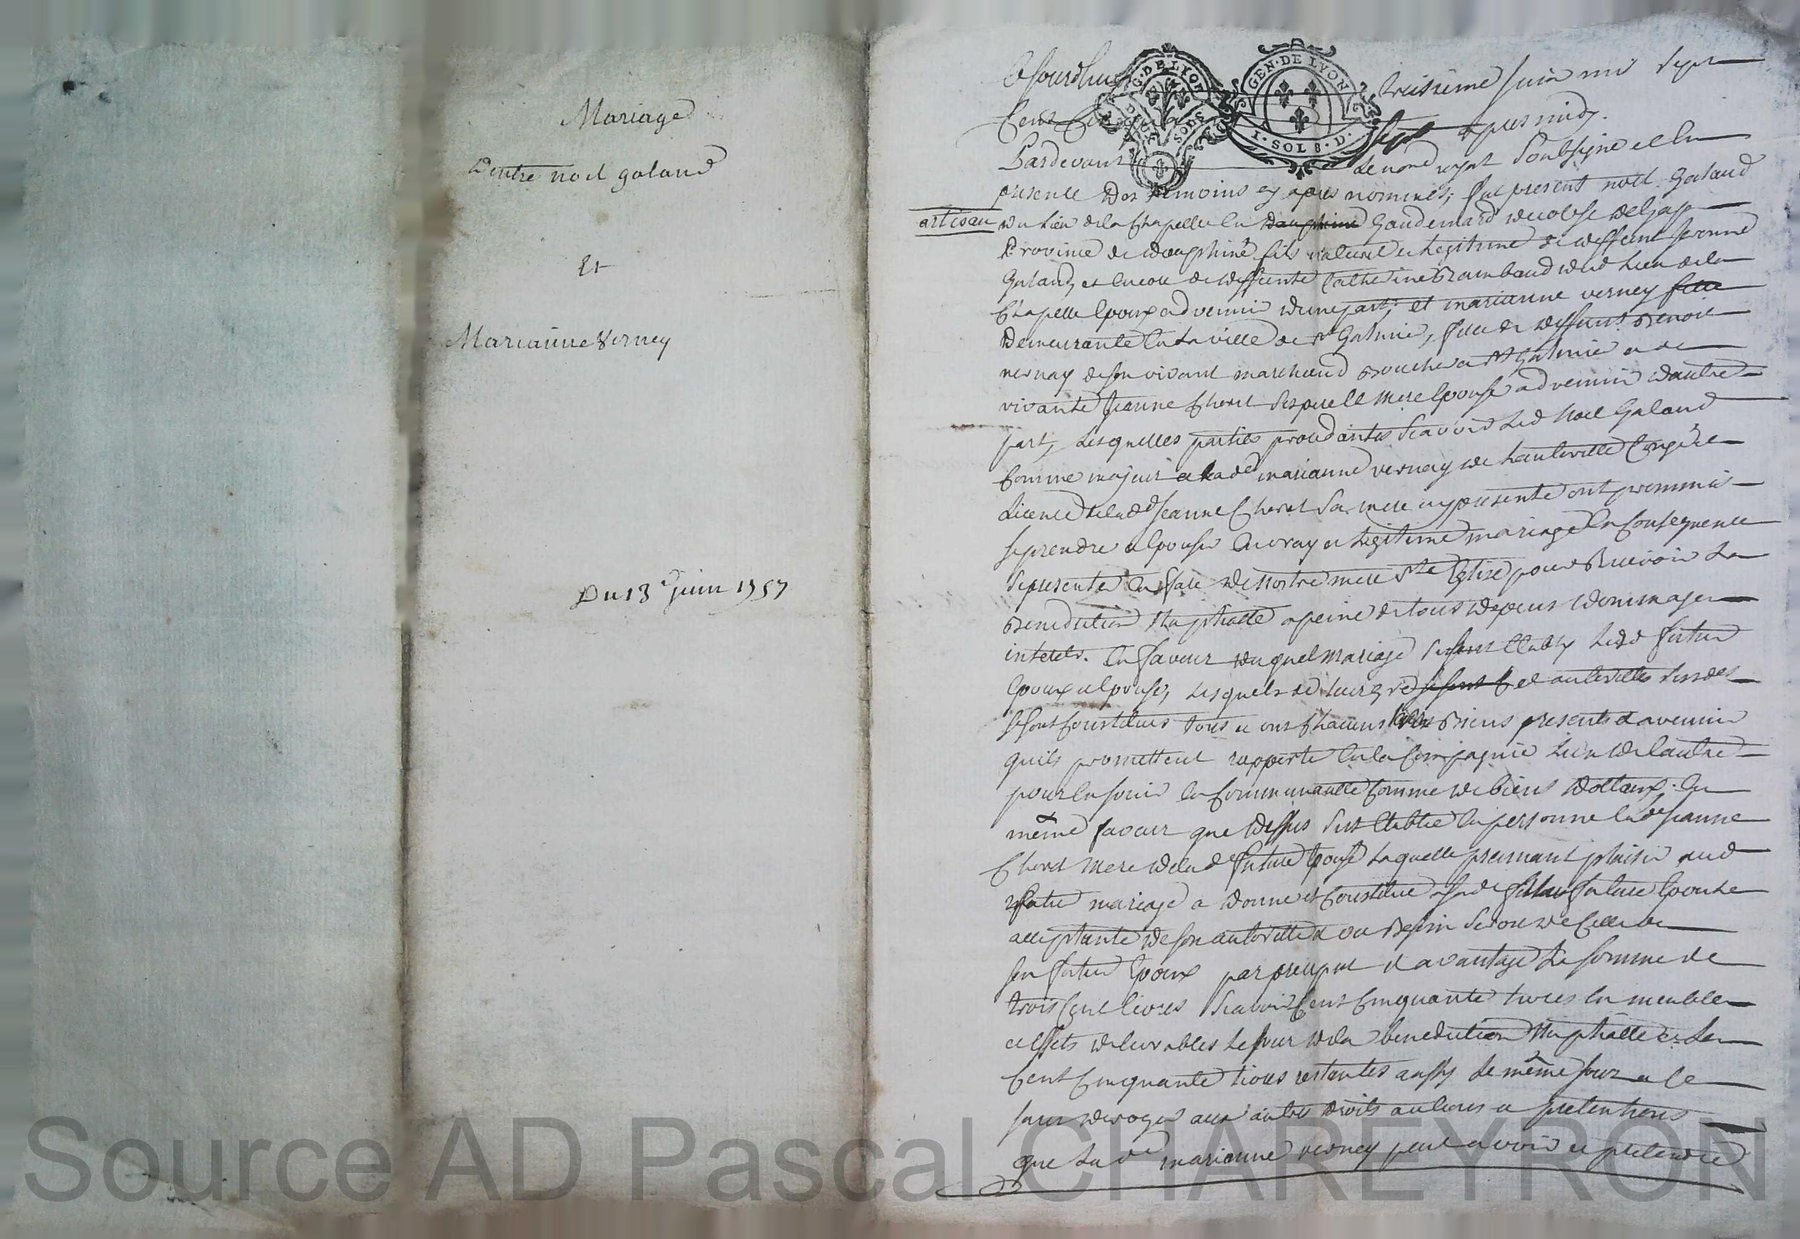 Mariage
D'entre noel galand
Et
Marianne Verney
Du 13e juin 1757
GEN. DE LYON
GEN. DE LYON
1. SOL 8. D.
Ce Jourdhuy treizieme Juin mil sept
Cent apres midy.
Pardevant le no.re royal soussigne et En
presence des temoins cy apres nommés, fut present noel Galand
artisan
du Lieu de la Chapelle En dauphiné Gaudemard de Gap
Province de dauphiné fils naturel et legitime de deffunt
Galand, et Encore de deffunte Catherine Rambaud dud. Lieu de la
Chapelle Epoux advenir d'une part; et marianne verney fille
Demeurante En La ville de St Galmier, fille de deffunt Benoit
verney de son vivant marchand Boucher a St Galmier et de
vivante Jeanne Cheret Epouse advenir d'autre
part, Lesquelles parties procedantes scavoir Led. Noel Galand
Comme majeur et lad.e marianne verney de L'autorité Congé et
Licence de lad.e Jeanne Cheret Sa mere cy presente ont promis
se prendre et Epouser En vray et legitime mariage En Consequence
se presenter En face de Nostre mere Ste Eglise pour Recevoir La
Benediction Nuptialle a peine de tous depens dommages
interets. En faveur duquel mariage Led. futur
Epoux et Epouse, Lesquels de leur gré et autorités susdes
se sont Constitués tous et un Chacuns Leurs Biens presents et avenir
quils promettent rapporter En la Compagnie L'un de L'autre
pour En Jouir En Communauté Comme de biens Dottaux. En
même faveur que dessus s'est Etablie En personne lad.e Jeanne
Cheret Mere de lad.e future Epouse Laquelle prennant plaisir aud.
mariage a donné et Constitué a sad.e fille future Epouse
acceptante de son autorité et ou Besoin Seroit de Celle de
son futur Epoux par preciput et avantage La somme de
trois Cent livres Scavoir Cent Cinquante livres En meubles
et Effets delivrables Le Jour de la benediction Nuptialle et Les
Cent Cinquante livres restantes aussy Le même Jour et Ce
sans deroger aux autres droits actions et pretentions
que Lad.e marianne verney peut avoir et pretendre
Source AD Pascal CHAREYRON